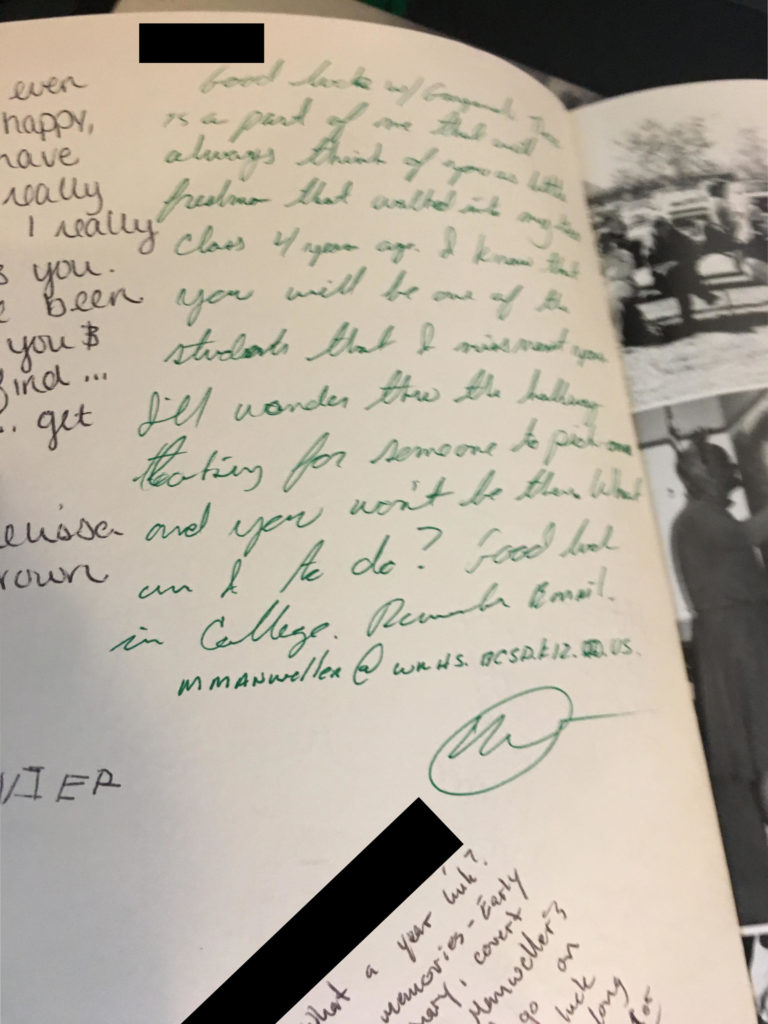 even
happy,
have
really
I really
s you.
been
you $
find ...
.. get
elissa
rown
Good luck w/ There
is a part of me that will
always think of you as little
that walked into my
class 4 years ago. I know that
you will be one of the
students that I miss most you
I'll wander thru the hallway
for someone to pick on
and you won't be there What
am I to do? Good luck
in College. Remember Email.
MMANWELLER @ WRHS. BCSD.K12. .US.
VIER
What a year huh?
memories - Early
covert
Manweller's
go on
luck
long
for